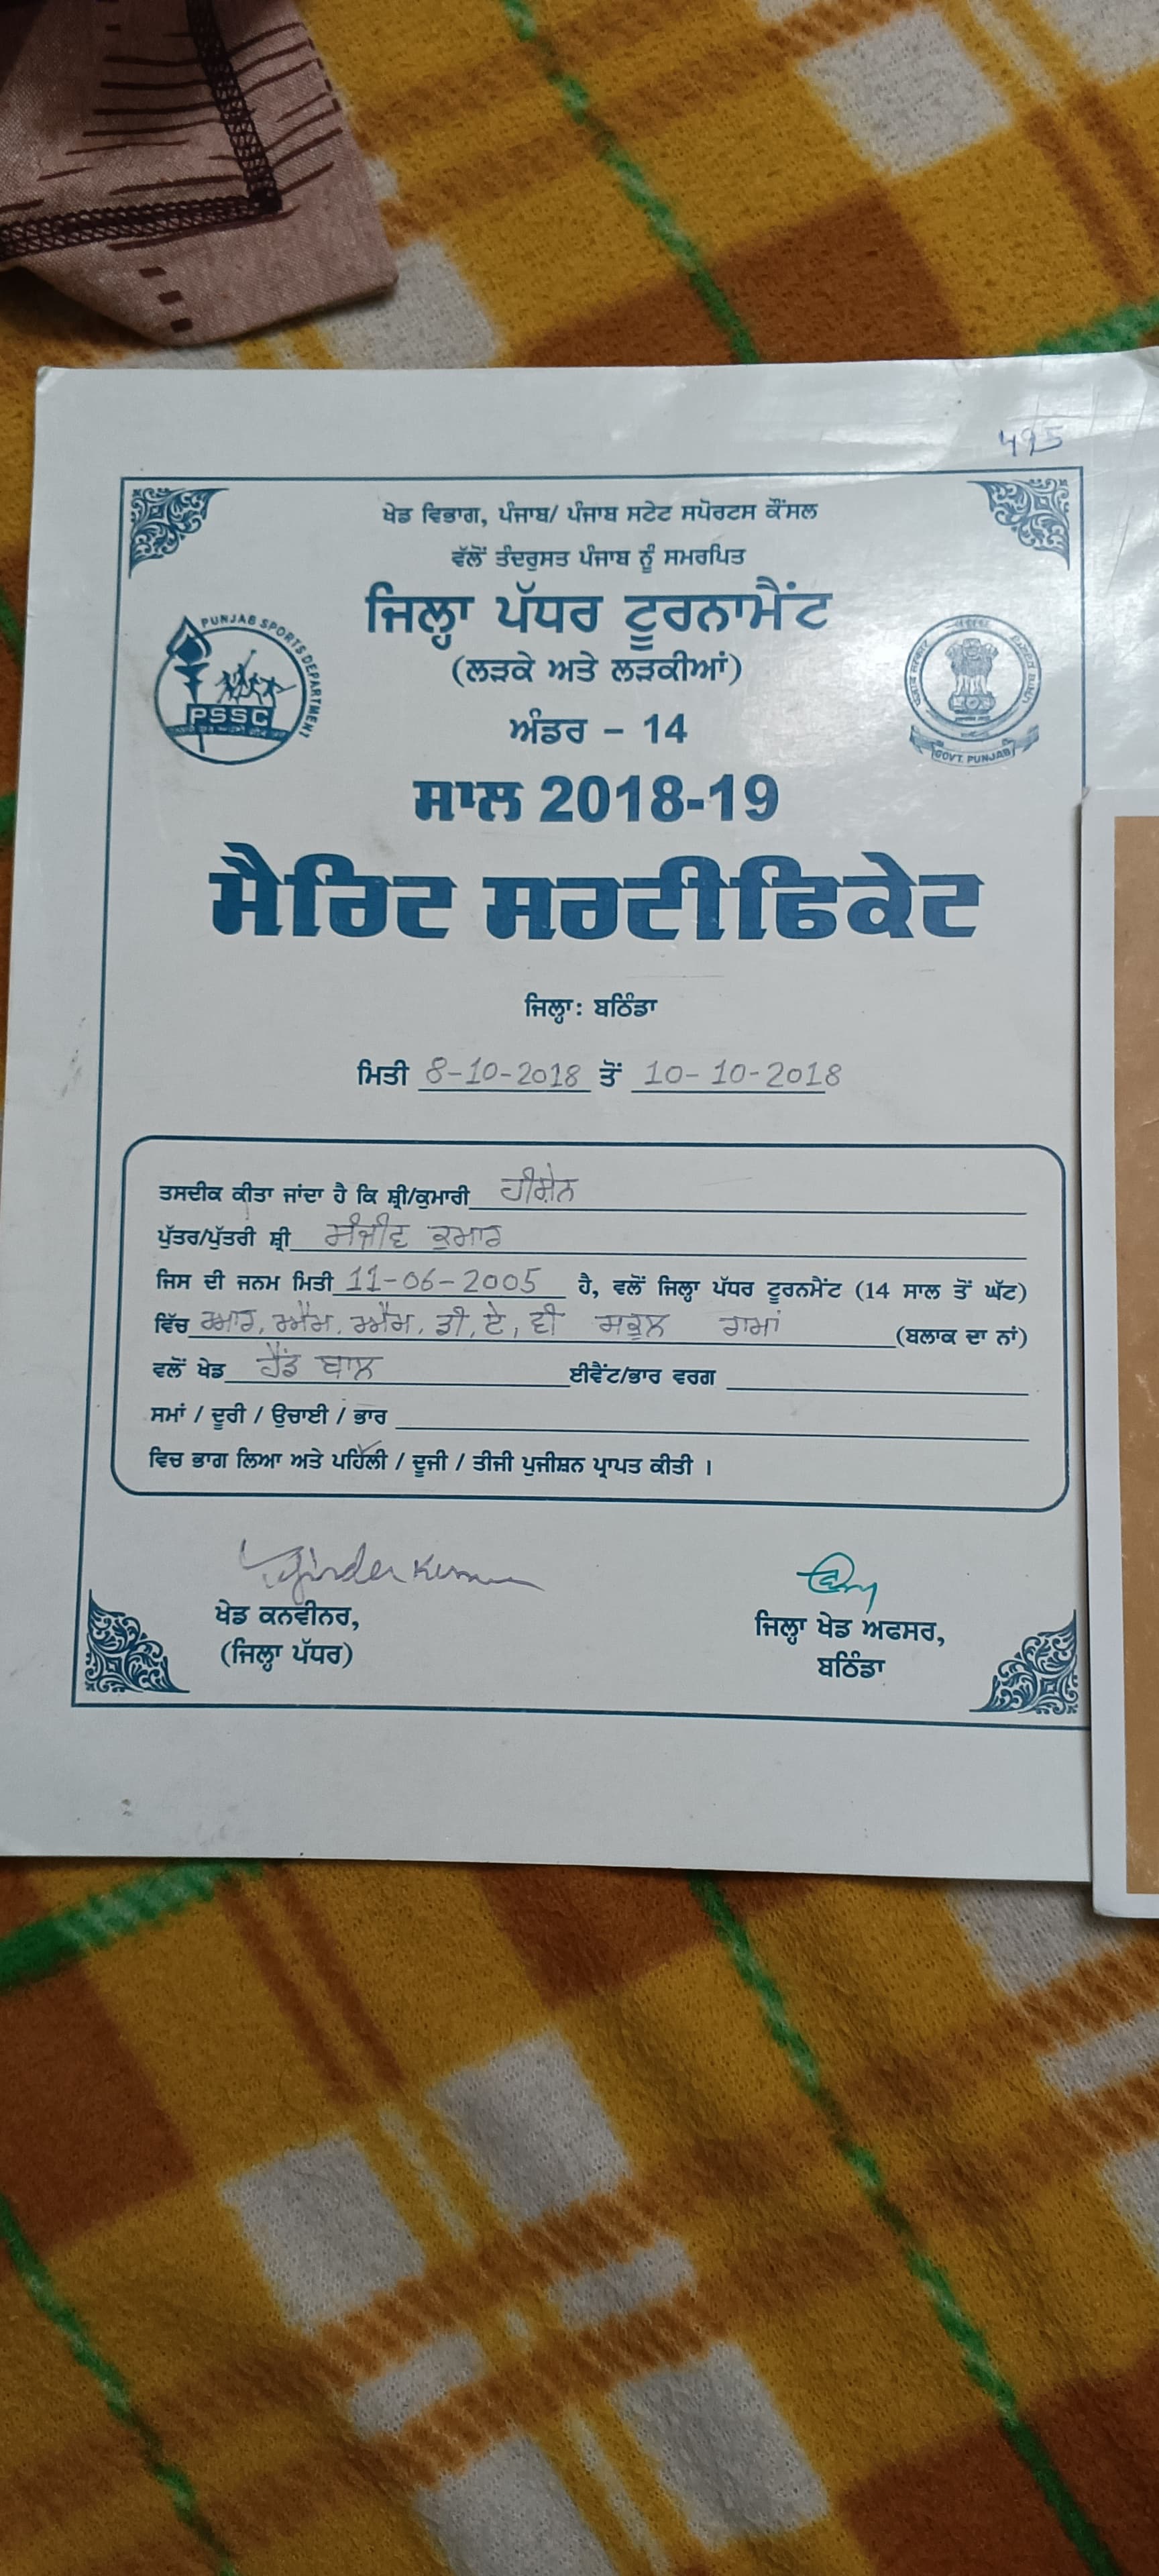 495
ਖੇਡ ਵਿਭਾਗ, ਪੰਜਾਬ/ ਪੰਜਾਬ ਸਟੇਟ ਸਪੋਰਟਸ ਕੌਂਸਲ
ਵੱਲੋਂ ਤੰਦਰੁਸਤ ਪੰਜਾਬ ਨੂੰ ਸਮਰਪਿਤ
ਜਿਲ੍ਹਾ ਪੱਧਰ ਟੂਰਨਾਮੈਂਟ
(ਲੜਕੇ ਅਤੇ ਲੜਕੀਆਂ)
PUNJAB SPORTS DEPARTMENT
PSSC
GOVT. PUNJAB
ਅੰਡਰ – 14
ਸਾਲ 2018-19
ਮੈਰਿਟ ਸਰਟੀਫਿਕੇਟ
ਜਿਲ੍ਹਾ: ਬਠਿੰਡਾ
ਮਿਤੀ 8-10-2018 ਤੋਂ 10-10-2018
ਤਸਦੀਕ ਕੀਤਾ ਜਾਂਦਾ ਹੈ ਕਿ ਸ਼੍ਰੀ/ਕੁਮਾਰੀ
ਪੁੱਤਰ/ਪੁੱਤਰੀ ਸ਼੍ਰੀ ਸੰਜੀਵ ਕੁਮਾਰ
ਜਿਸ ਦੀ ਜਨਮ ਮਿਤੀ 11-06-2005 ਹੈ, ਵਲੋਂ ਜਿਲ੍ਹਾ ਪੱਧਰ ਟੂਰਨਮੈਂਟ (14 ਸਾਲ ਤੋਂ ਘੱਟ)
ਵਿੱਚ ਆਰ. ਐਮ. ਐਮ. ਡੀ. ਏ. ਵੀ ਸਕੂਲ ਰਾਮਾਂ (ਬਲਾਕ ਦਾ ਨਾਂ)
ਵਲੋਂ ਖੇਡ ਹੈਂਡ ਬਾਲ ਈਵੈਂਟ/ਭਾਰ ਵਰਗ
ਸਮਾਂ / ਦੂਰੀ / ਉਚਾਈ / ਭਾਰ
ਵਿਚ ਭਾਗ ਲਿਆ ਅਤੇ ਪਹਿਲੀ / ਦੂਜੀ / ਤੀਜੀ ਪੁਜੀਸ਼ਨ ਪ੍ਰਾਪਤ ਕੀਤੀ ।
ਖੇਡ ਕਨਵੀਨਰ,
(ਜਿਲ੍ਹਾ ਪੱਧਰ)
ਜਿਲ੍ਹਾ ਖੇਡ ਅਫਸਰ,
ਬਠਿੰਡਾ